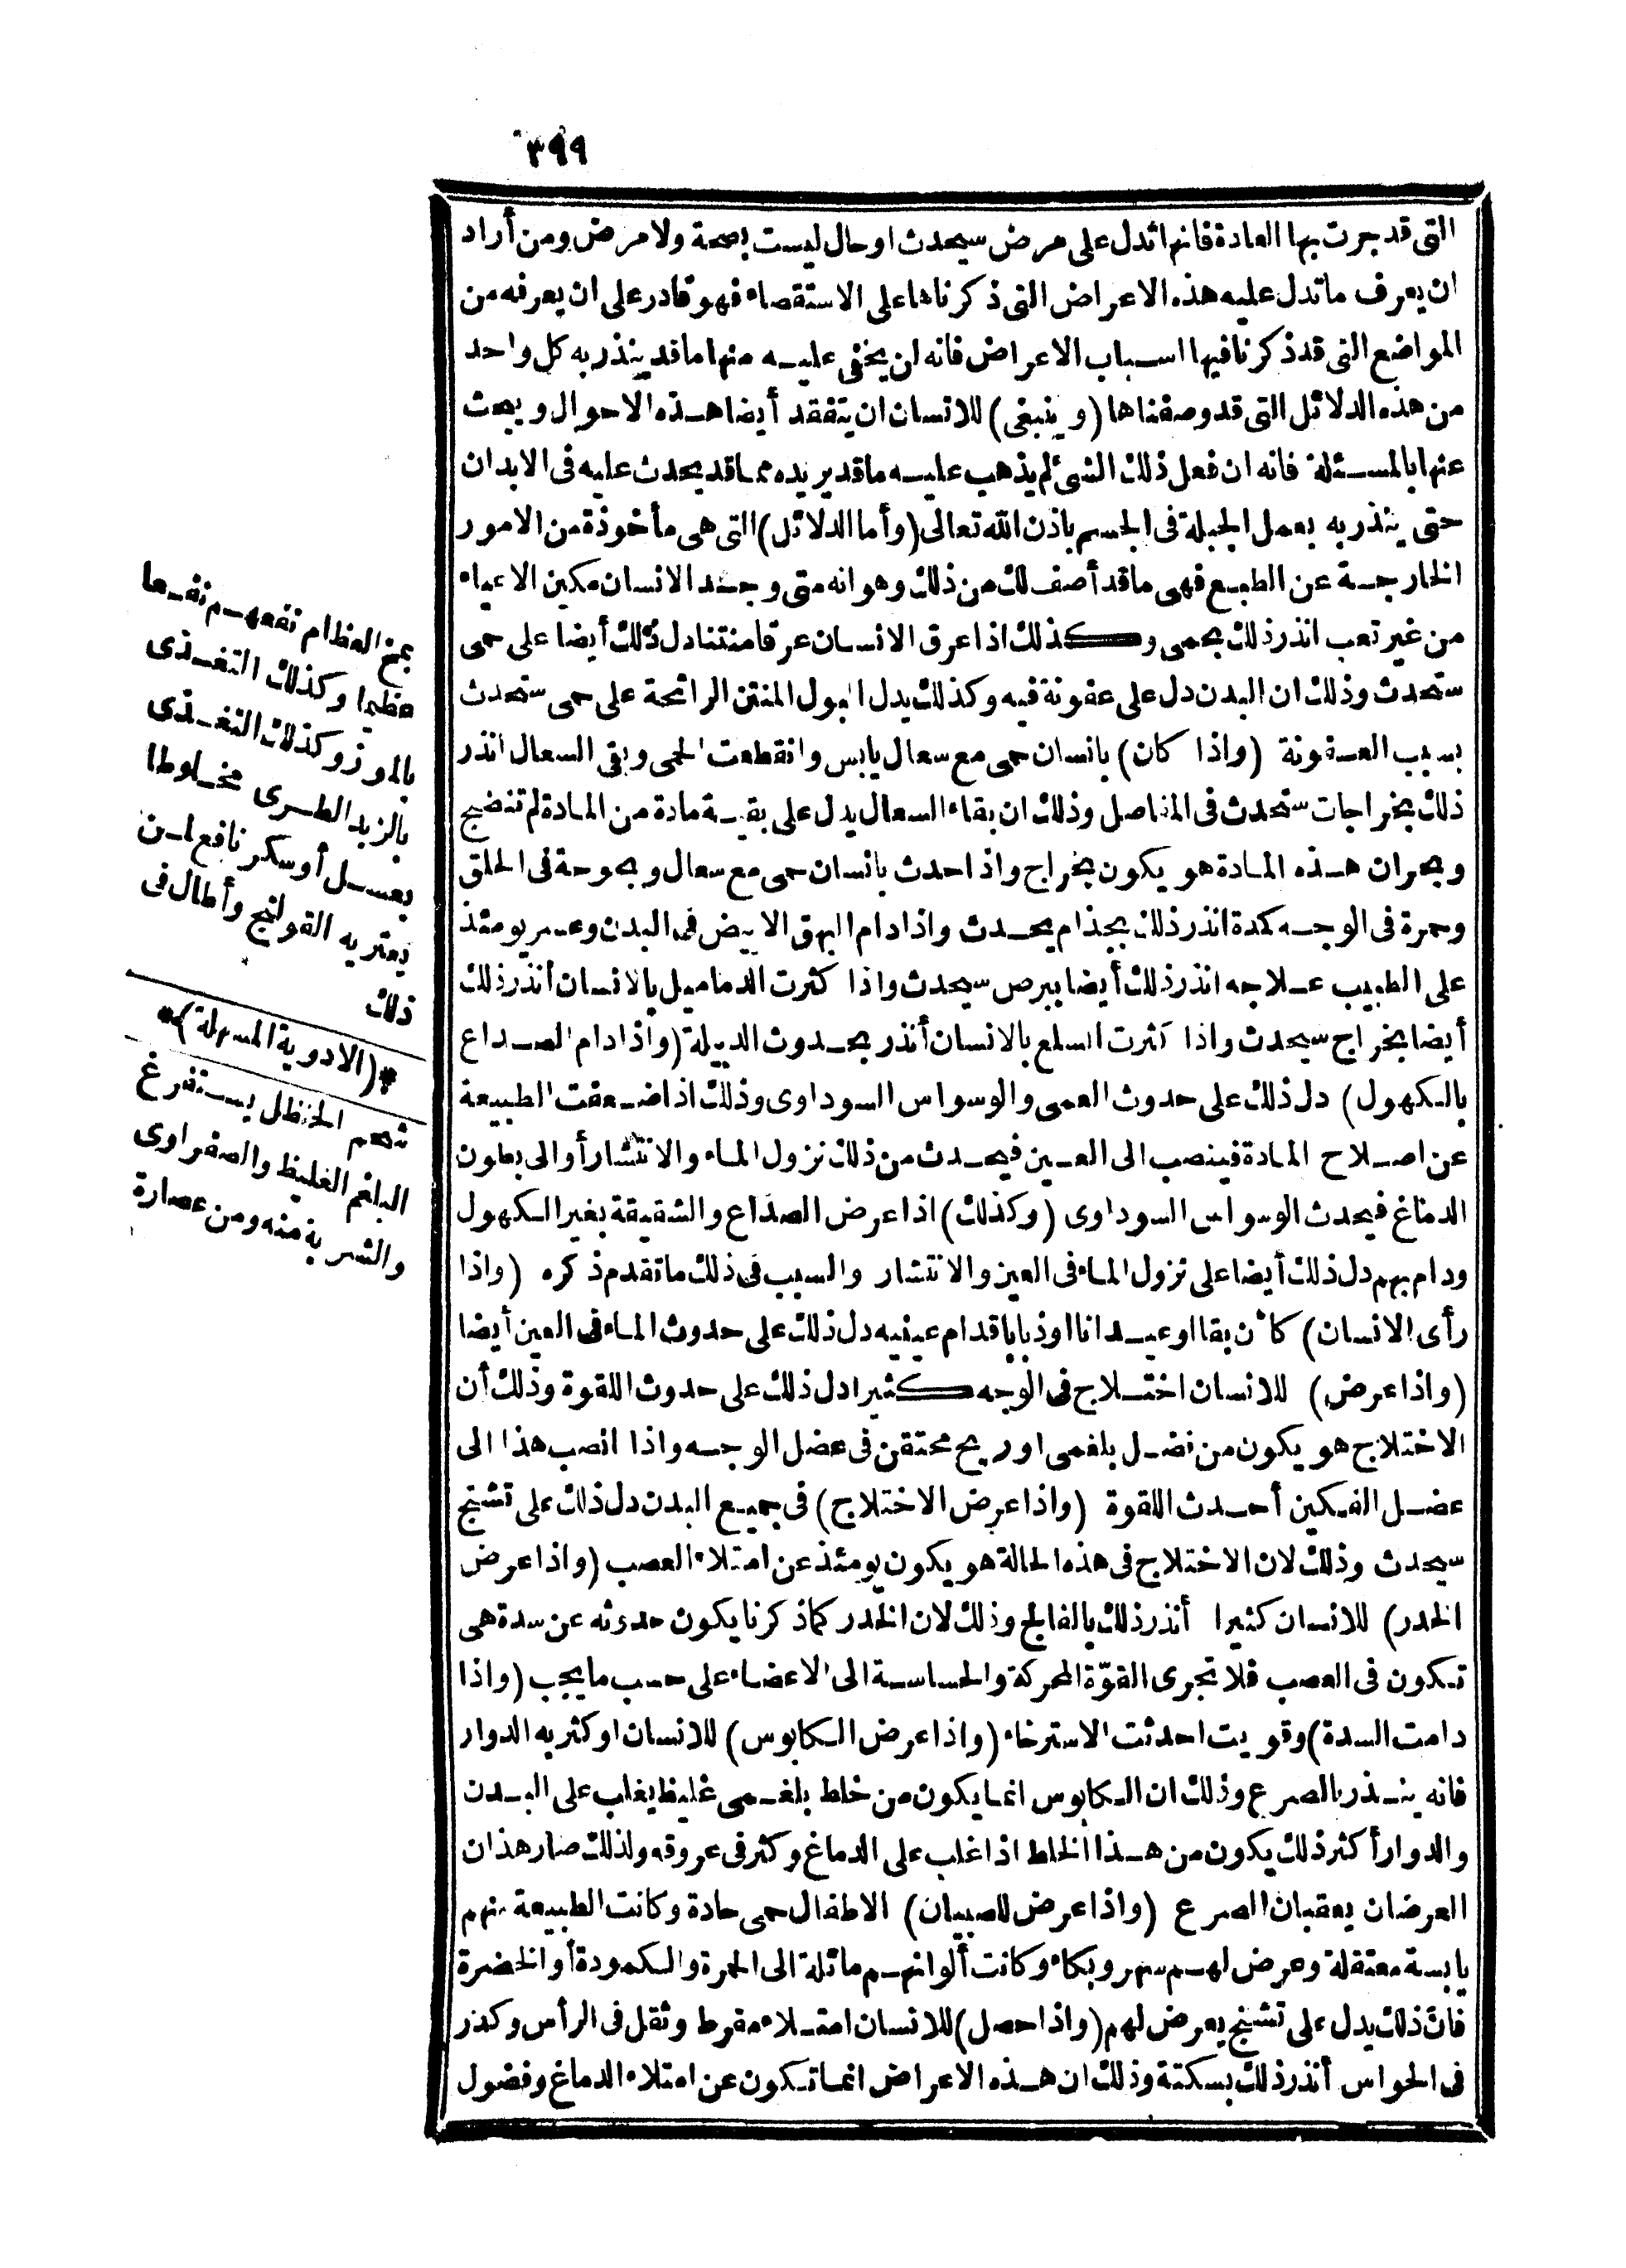 ٣٩٩
التى قد جرت بها العادة فانها تدل على مرض سيحدث او حال ليست بصحة ولا مرض ومن أراد
ان يعرف ماتدل عليه هذه الاعراض التى ذكرناها على الاستقصاء فهو قادر على ان يعرفه من
المواضع التى قد ذكرنا فيها اسباب الاعراض فانه لن يخفى عليه منها ما قد ينذر به كل واحد
من هذه الدلائل التى قد وصفناها (وينبغى) للانسان ان يتفقد أيضا هذه الاحوال ويبحث
عنها بالمسئلة فانه ان فعل ذلك الشئ لم يذهب عليه ما قد يريده مما قد يحدث عليه فى الابدان
حتى ينذر به بعمل الجبلة فى الجسم باذن الله تعالى (وأما الدلائل) التى هى مأخوذة من الامور
الخارجة عن الطبع فهى ما قد أصف لك من ذلك وهو انه متى وجد الانسان مكين الاعياء
من غير تعب انذر ذلك بحمى وكذلك اذا عرق الانسان عرقا منتنا دل ذلك أيضا على حمى
ستحدث وذلك ان البدن دل على عفونة فيه وكذلك يدل البول المنتن الرائحة على حمى ستحدث
بسبب العفونة (واذا كان) بانسان حمى مع سعال يابس وانقطعت الحمى وبقى السعال انذر
ذلك بخراجات ستحدث فى المفاصل وذلك ان بقاء السعال يدل على بقية مادة من المادة لم تنضج
وبحران هذه المادة هو يكون بخراج واذا حدث بانسان حمى مع سعال وبحوحة فى الحلق
وحمرة فى الوجه كمدة انذر ذلك بجذام يحدث واذا دام البهق الابيض فى البدن وعسر يومئذ
على الطبيب علاجه انذر ذلك أيضا ببرص سيحدث واذا كثرت الدماميل بالانسان أنذر ذلك
أيضا بخراج سيحدث واذا كثرت السلع بالانسان أنذر بحدوث الدبيلة (واذا دام الصداع
بالكهول) دل ذلك على حدوث العمى والوسواس السوداوى وذلك اذا ضعفت الطبيعة
عن اصلاح المادة فينصب الى العين فيحدث من ذلك نزول الماء والانتشار أو الى بطون
الدماغ فيحدث الوسواس السوداوى (وكذلك) اذا عرض الصداع والشقيقة بغير الكهول
ودام بهم دل ذلك أيضا على نزول الماء فى العين والانتشار والسبب فى ذلك ما تقدم ذكره (واذا
رأى الانسان) كأن بقا او عيدانا او ذبابا قدام عينيه دل ذلك على حدوث الماء فى العين أيضا
(واذا عرض) للانسان اختلاج فى الوجه كثيرا دل ذلك على حدوث اللقوة وذلك أن
الاختلاج هو يكون من فضل بلغمى او ريح محتقن فى عضل الوجه واذا انصب هذا الى
عضل الفكين أحدث اللقوة (واذا عرض الاختلاج) فى جميع البدن دل ذلك على تشنج
سيحدث وذلك لان الاختلاج فى هذه الحالة هو يكون يومئذ عن امتلاء العصب (واذا عرض
الخدر) للانسان كثيرا أنذر ذلك بالفالج وذلك لان الخدر كما ذكرنا يكون حدوثه عن سدة هى
تكون فى العصب فلا تجرى القوّة المحركة والحساسة الى الاعضاء على حسب ما يجب (واذا
دامت السدة) وقويت احدثت الاسترخاء (واذا عرض الكابوس) للانسان او كثر به الدوار
فانه ينذر بالصرع وذلك ان الكابوس انما يكون من خلط بلغمى غليظ يغلب على البدن
والدوار أكثر ذلك يكون من هذا الخلط اذا غلب على الدماغ وكثر فى عروقه ولذلك صار هذان
العرضان يعقبان الصرع (واذا عرض للصبيان) الاطفال حمى حادة وكانت الطبيعة منهم
يابسة معتقلة وعرض لهم سهر وبكاء وكانت ألوانهم مائلة الى الحمرة والكمودة أو الخضرة
فان ذلك يدل على تشنج يعرض لهم (واذا حصل) للانسان امتلاء مفرط وثقل فى الرأس وكدر
فى الحواس أنذر ذلك بسكتة وذلك ان هذه الاعراض انما تكون عن امتلاء الدماغ وفضول
بمخ العظام نفعهم نفعا
عظيما وكذلك التغذى
بالموز وكذلك التغذى
بالزبد الطرى مخلوطا
بعسل أو سكر نافع لمن
يعتريه القولنج وأطال فى
ذلك
*(الادوية المسهلة)*
شحم الحنظل يستفرغ
البلغم الغليظ والصفراوى
والشربة منه ومن عصارة